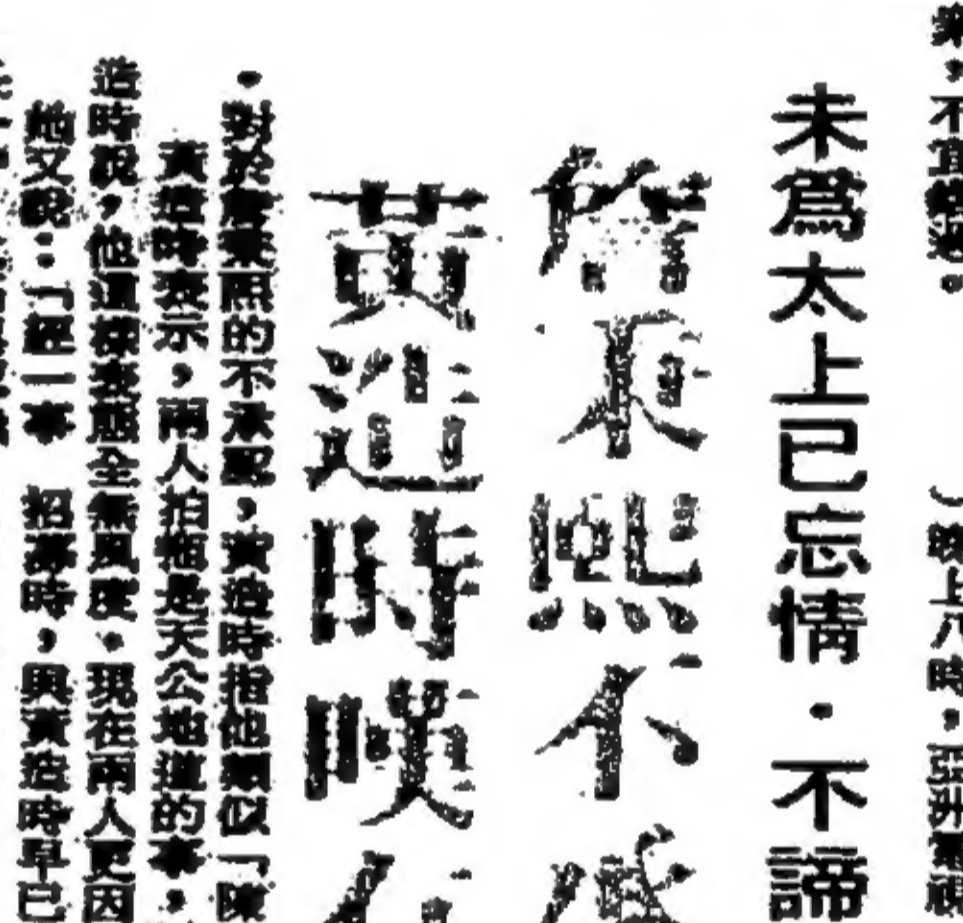 樂，不宜錯過。
）晚上八時，亞洲電視
未爲太上已忘情・不諦
秉熙不
黃造時嘆
。對於秉熙的不承認，黃造時指他類似「陳
黃造時表示，兩人拍拖是天公地道的事，
造時說，他這樣表態全無風度。現在兩人更因
她又說：「經一事 招壽時，與黃造時早已